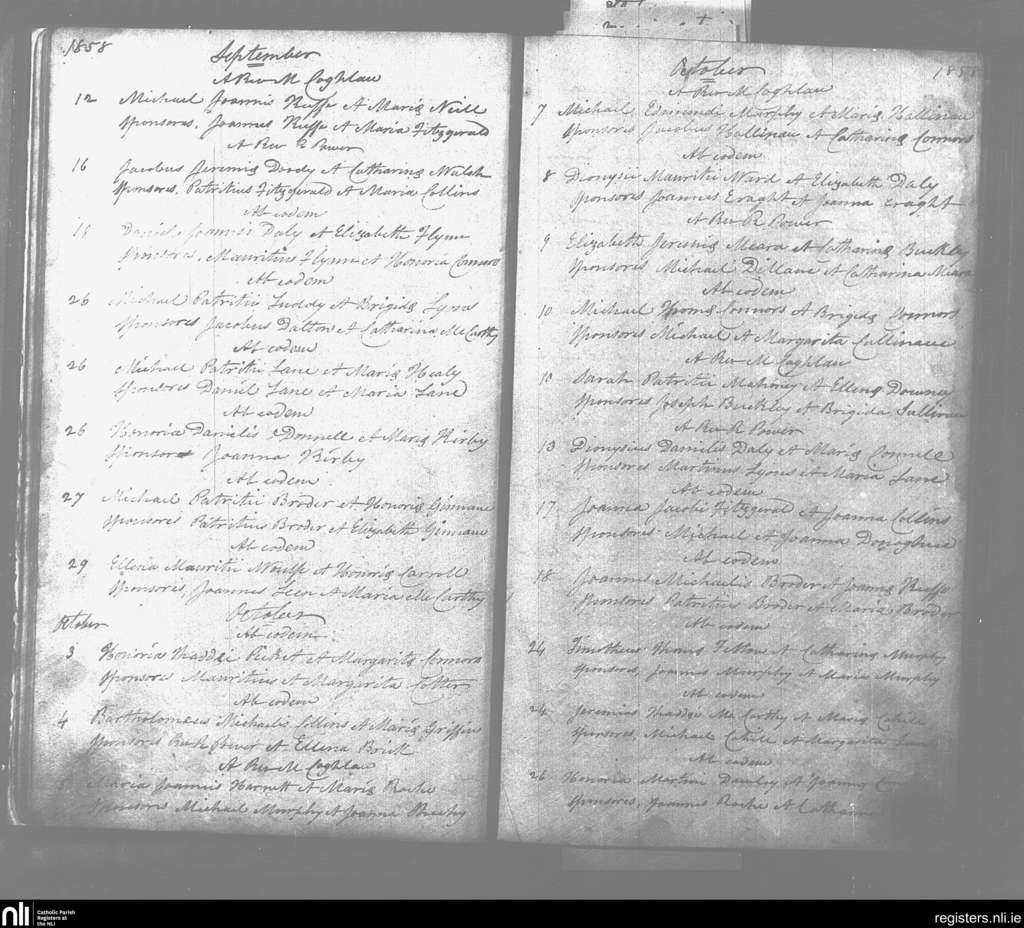 1858
September
A Rev M Coghlan
12 Michael Joannis Russe et Mariæ Neill
Sponsores, Joannes Russe et Maria Fitzgerald
A Rev R Power
16 Jacobus Jeremiæ Doody et Catharinæ Walsh
Sponsores, Patritius Fitzgerald et Maria Collins
Ab eodem
Daniel Joannis Daly et Elizabeth Flynn
Sponsores, Mauritius Flynn et Honoria Connors
Ab eodem
26 Michael Patritii Luddy et Brigidæ Lyons
Sponsores Jacobus Dalton et Catharina McCarthy
Ab eodem
26 Michael Patritii Lane et Mariæ Healy
Sponsores Daniel Lane et Maria Lane
Ab eodem
26 Honoria Danielis Donnell et Mariæ Kirby
Sponsores Joanna Kirby
Ab eodem
27 Michael Patritii Broder et Honoriæ Ginnane
Sponsores Patritius Broder et Elizabeth Ginnane
Ab eodem
29 Ellena Mauritii Woulfe et Honoriæ Carroll
Sponsores, Joannes et Maria McCarthy
October
October
Ab eodem
3 Honoria Thaddæi et Margaritæ Connors
Sponsores Mauritius et Margarita
Ab eodem
4 Bartholomeus Michaelis Collins et Mariæ Griffin
Sponsores Power et Ellena Brick
A Rev M Coghlan
Maria Joannis Harnett et Mariæ Roche
Sponsores Michael Murphy et Joanna Sheehy
October
1858
A Rev M Coghlan
7 Michael Edmundi Murphy et Mariæ Hallinan
Sponsores Jacobus Hallinan et Catharina Connors
Ab eodem
8 Dionysii Mauritii Ward et Elizabeth Daly
Sponsores Joannes Eraght et Joanna Eraght
A Rev R Power
9 Elizabeth Jeremiæ Meara et Catharinæ Buckley
Sponsores Michael Dillane et Catharina Meara
Ab eodem
10 Michael Thomæ Connors et Brigidæ Connors
Sponsores Michael et Margarita Cullinane
A Rev M Coghlan
10 Sarah Patritii Mahoney et Ellenæ Downey
Sponsores Joseph Buckley et Brigida Sullivan
A Rev R Power
13 Dionysius Danielis Daly et Mariæ Connell
Sponsores Martinus Lyons et Maria Lane
Ab eodem
17 Joanna Jacobi Fitzgerald et Joannæ Collins
Sponsores Michael et Joanna Donoghue
Ab eodem
18 Joannes Michaelis Broder et Joannæ Russe
Sponsores Patritius Broder et Maria Broder
Ab eodem
24 Timotheus Thomæ Fitton et Catharinæ Murphy
Sponsores, Joannes Murphy et Maria Murphy
Ab eodem
24 Jeremias Thaddæi McCarthy et Mariæ Cahill
Sponsores, Michael Cahill et Margarita
Ab eodem
26 Honoria Martini Dawley et Joannæ
Sponsores, Joannes Roche et Catharina
nli
Catholic Parish
Registers at
the NLI
registers.nli.ie